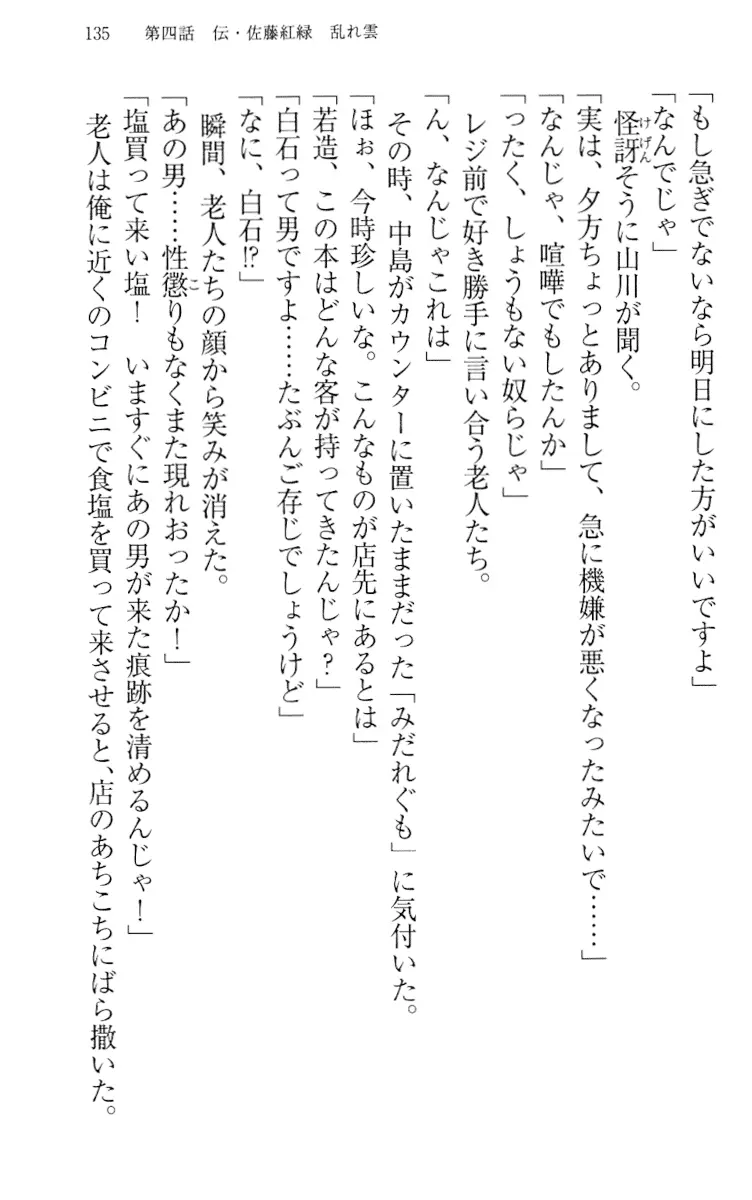 135　第四話　伝・佐藤紅緑　乱れ雲
「もし急ぎでないなら明日にした方がいいですよ」
「なんでじゃ」
怪訝そうに山川が聞く。
「実は、夕方ちょっとありまして、急に機嫌が悪くなったみたいで……」
「なんじゃ、喧嘩でもしたんか」
「ったく、しょうもない奴らじゃ」
レジ前で好き勝手に言い合う老人たち。
「ん、なんじゃこれは」
その時、中島がカウンターに置いたままだった「みだれぐも」に気付いた。
「ほぉ、今時珍しいな。こんなものが店先にあるとは」
「若造、この本はどんな客が持ってきたんじゃ？」
「白石って男ですよ……たぶんご存じでしょうけど」
「なに、白石!?」
瞬間、老人たちの顔から笑みが消えた。
「あの男……性懲りもなくまた現れおったか！」
「塩買って来い塩！　いますぐにあの男が来た痕跡を清めるんじゃ！」
老人は俺に近くのコンビニで食塩を買って来させると、店のあちこちにばら撒いた。